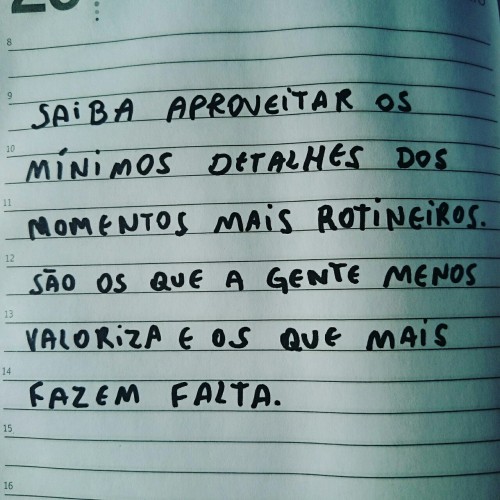 8
9 SAiBA APROVEiTAR OS
10 MÍNiMOS DETALHES DOS
11 MOMENTOS MAiS ROTiNEiROS.
12 SÃO OS QUE A GENTE MENOS
13 VALORiZA E OS QUE MAIS
14 FAZEM FALTA.
15
16